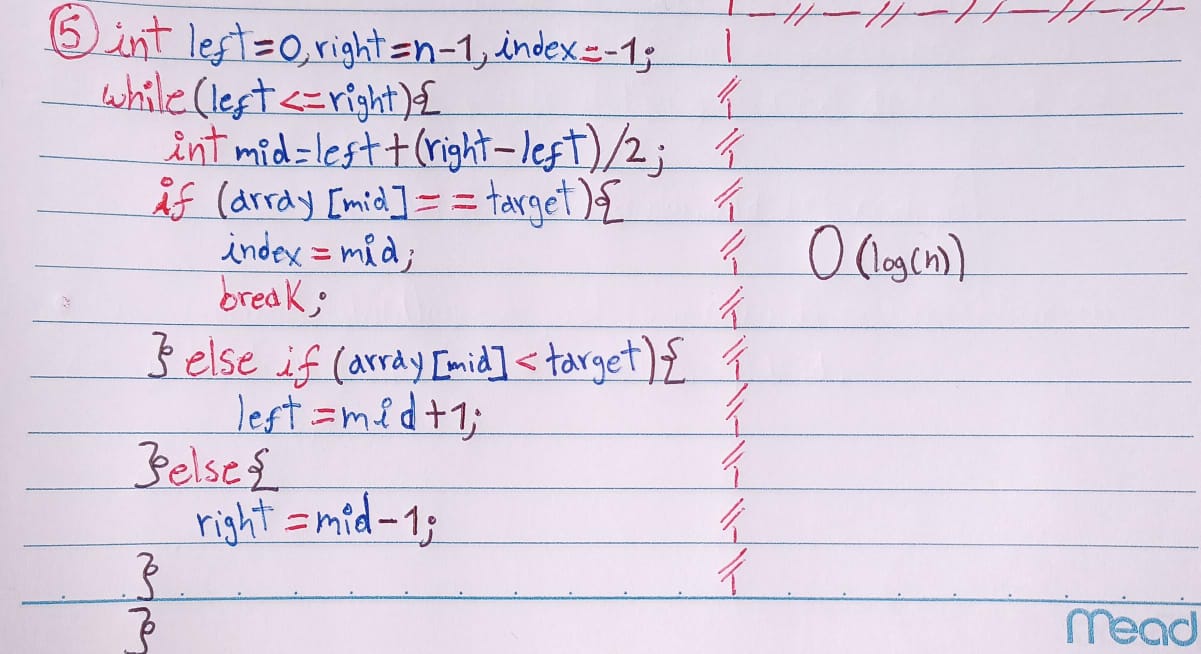 5 int left=0, right=n-1, index=-1;
while(left<=right){
int mid=left+(right-left)/2;
if (array[mid]==target){
index=mid;
break;
O(log(n))
}else if (array[mid]<target){
left=mid+1;
}else{
right=mid-1;
}
}
Mead